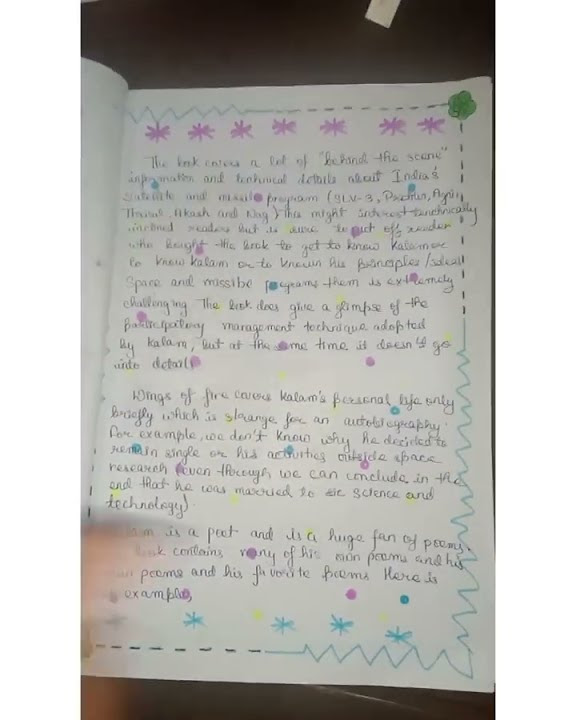 The book covers a lot of "behind the scene"
information and technical details about India's
satellite and missile program (SLV-3, Prithvi, Agni,
Trisul, Akash and Nag) This might interest technically
inclined readers but is sure to put off reader
who bought the book to get to know Kalam or
to know kalam or to known his principles/ideal
Space and missibe programs them is extremely
challenging The book does give a glimpse of the
Participatory management technique adopted
By kalam, but at the same time is doesn't go
into details
Wings of fire covers kalam's personal life only
briefly which is strange for an autobiography.
For example, we don't know why he decided to
remain single or his activities outside space
research (even through we can conclude in the
end that he was married to science and
technology).
is a poet and is a huge fan of poems.
book contains many of his own poems and his
poems and his favorite Poems Here is
example,